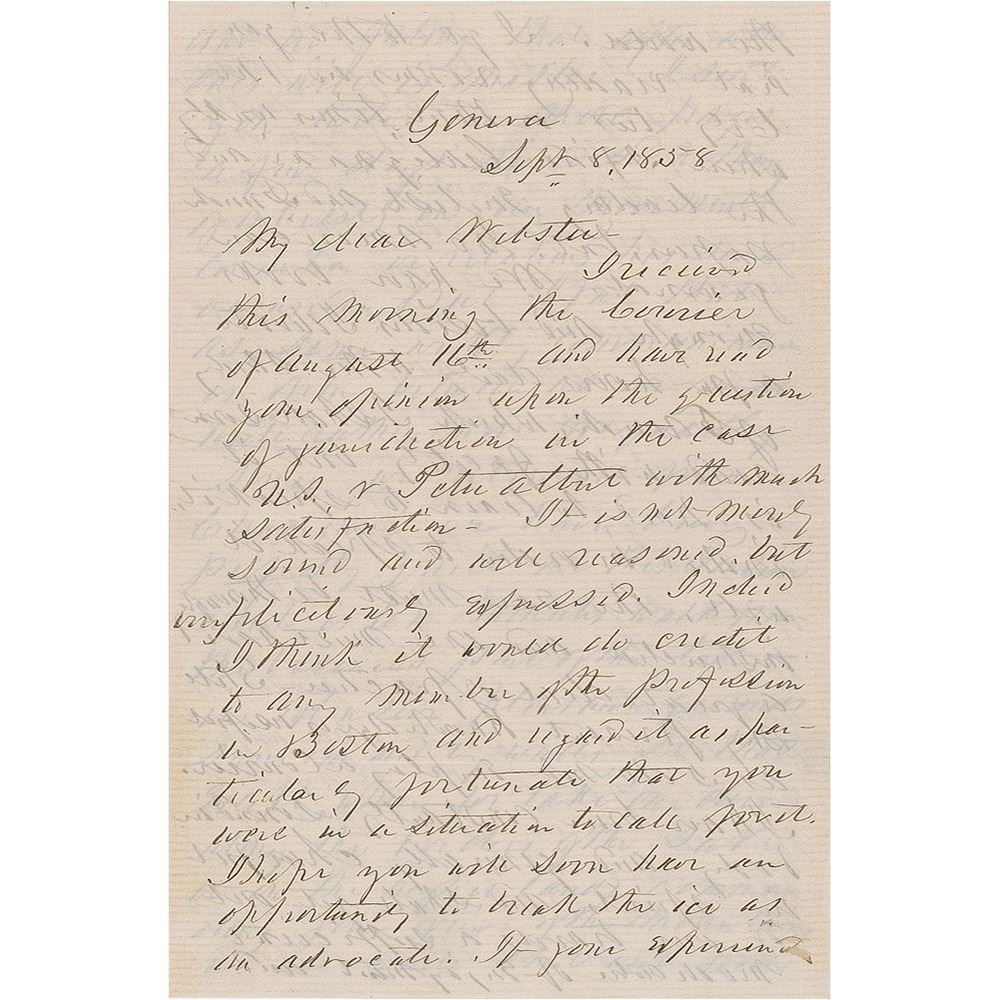 Geneva
Sept 8, 1858
My dear Webster –
I received
this morning the Courier
of August 16th and have read
your opinion upon the question
of jurisdiction in the case
U.S. v Peter Attret with much
satisfaction – It is not merely
sound and well reasoned, but
very felicitously expressed. Indeed
I think it would do credit
to any member of the profession
in Boston and regard it as par-
ticularly fortunate that you
were in a situation to call for it.
I hope you will soon have an
opportunity to break the ice as
an advocate. If your experience